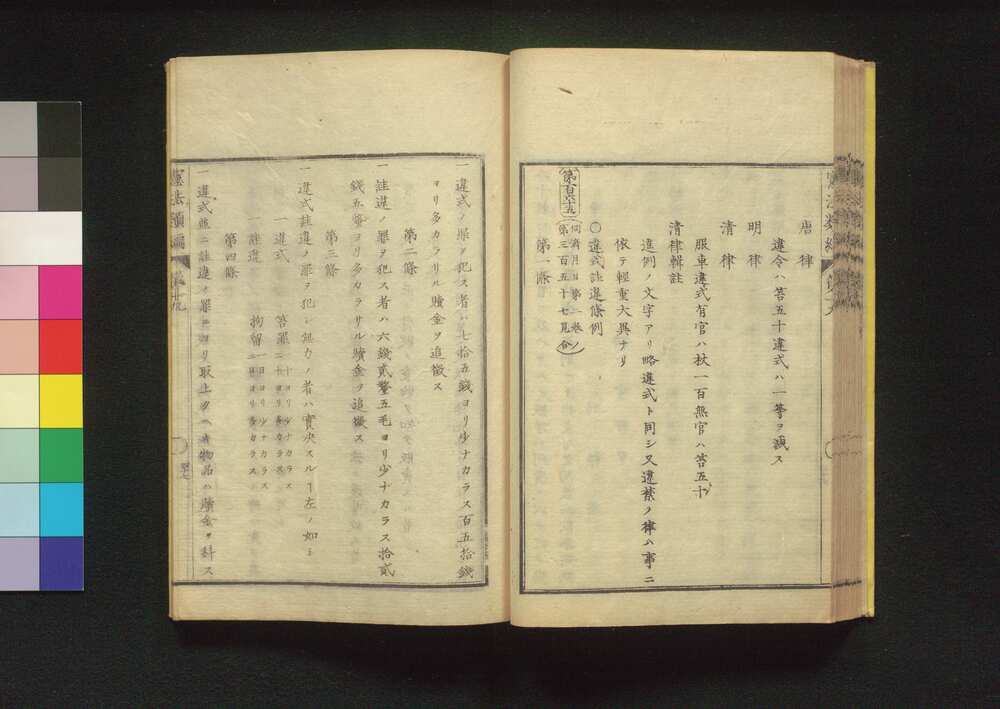 唐律
違令ハ笞五十違式ハ一等ヲ減ス
明律
清律
服車違式有官ハ杖一百無官ハ笞五十
清律輯註
違例ノ文字アリ略違式ト同シ又違禁ノ律ハ事ニ
依テ輕重大異ナリ
第百六十五
同済月日第二巻ノ
第三百五十七見合
〇違式註違條例
第一條
一違式ノ罪ヲ犯ス者ハ七拾五錢ヨリ少ナカラス百五拾錢
ヨリ多カラサル贖金ヲ追徴ス
第二條
一註違ノ罪ヲ犯ス者ハ六錢貳釐五毛ヨリ少ナカラス拾貳
錢五釐ヨリ多カラサル贖金ヲ追徴ス
第三條
一違式註違ノ罪ヲ犯シ無力ノ者ハ實決スルヿ左ノ如シ
一違式 笞罪 一十ヨリ少ナカラス
二十ヨリ多カラス
一註違 拘留 一日ヨリ少ナカラス
二日ヨリ多カラス
第四條
一違式並ニ註違ノ罪ニヨリ取上クヘキ物品ハ贖金ヲ科ス
憲法類編